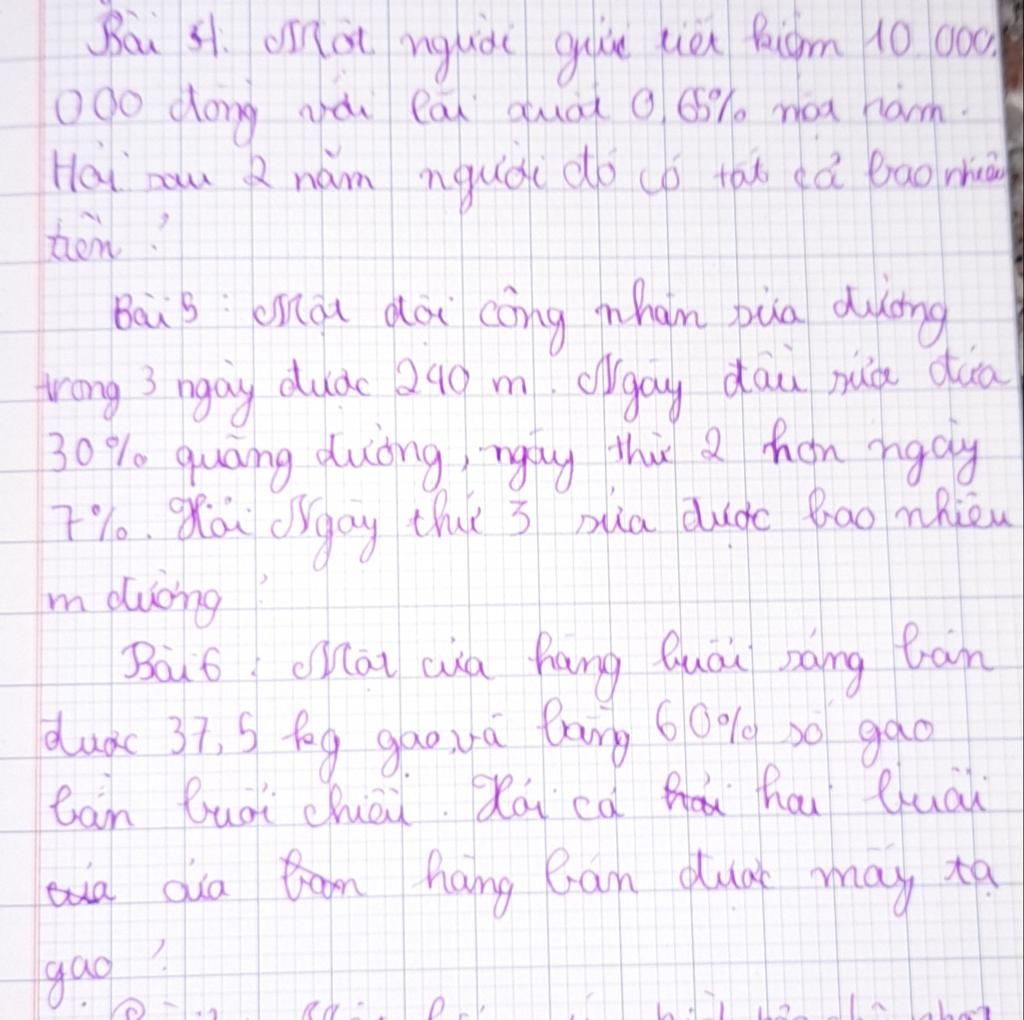 Bài 4. Một người gửi tiết kiệm 10.000.
000 đồng với lãi suất 0,65% nửa năm.
Hỏi sau 2 năm người đó có tất cả bao nhiêu
tiền ?
Bài 5 : Một đội công nhân sửa đường
trong 3 ngày được 240 m. Ngày đầu sửa đưa
30% quãng đường, ngày thứ 2 hơn ngày
7%. Hỏi Ngày thứ 3 sửa được bao nhiêu
m đường ?
Bài 6 : Một cửa hàng buổi sáng bán
được 37,5 kg gạo, và bằng 60% số gạo
bán buổi chiều. Hỏi cả hai buổi
cửa hàng bán được mấy tạ
gạo ?